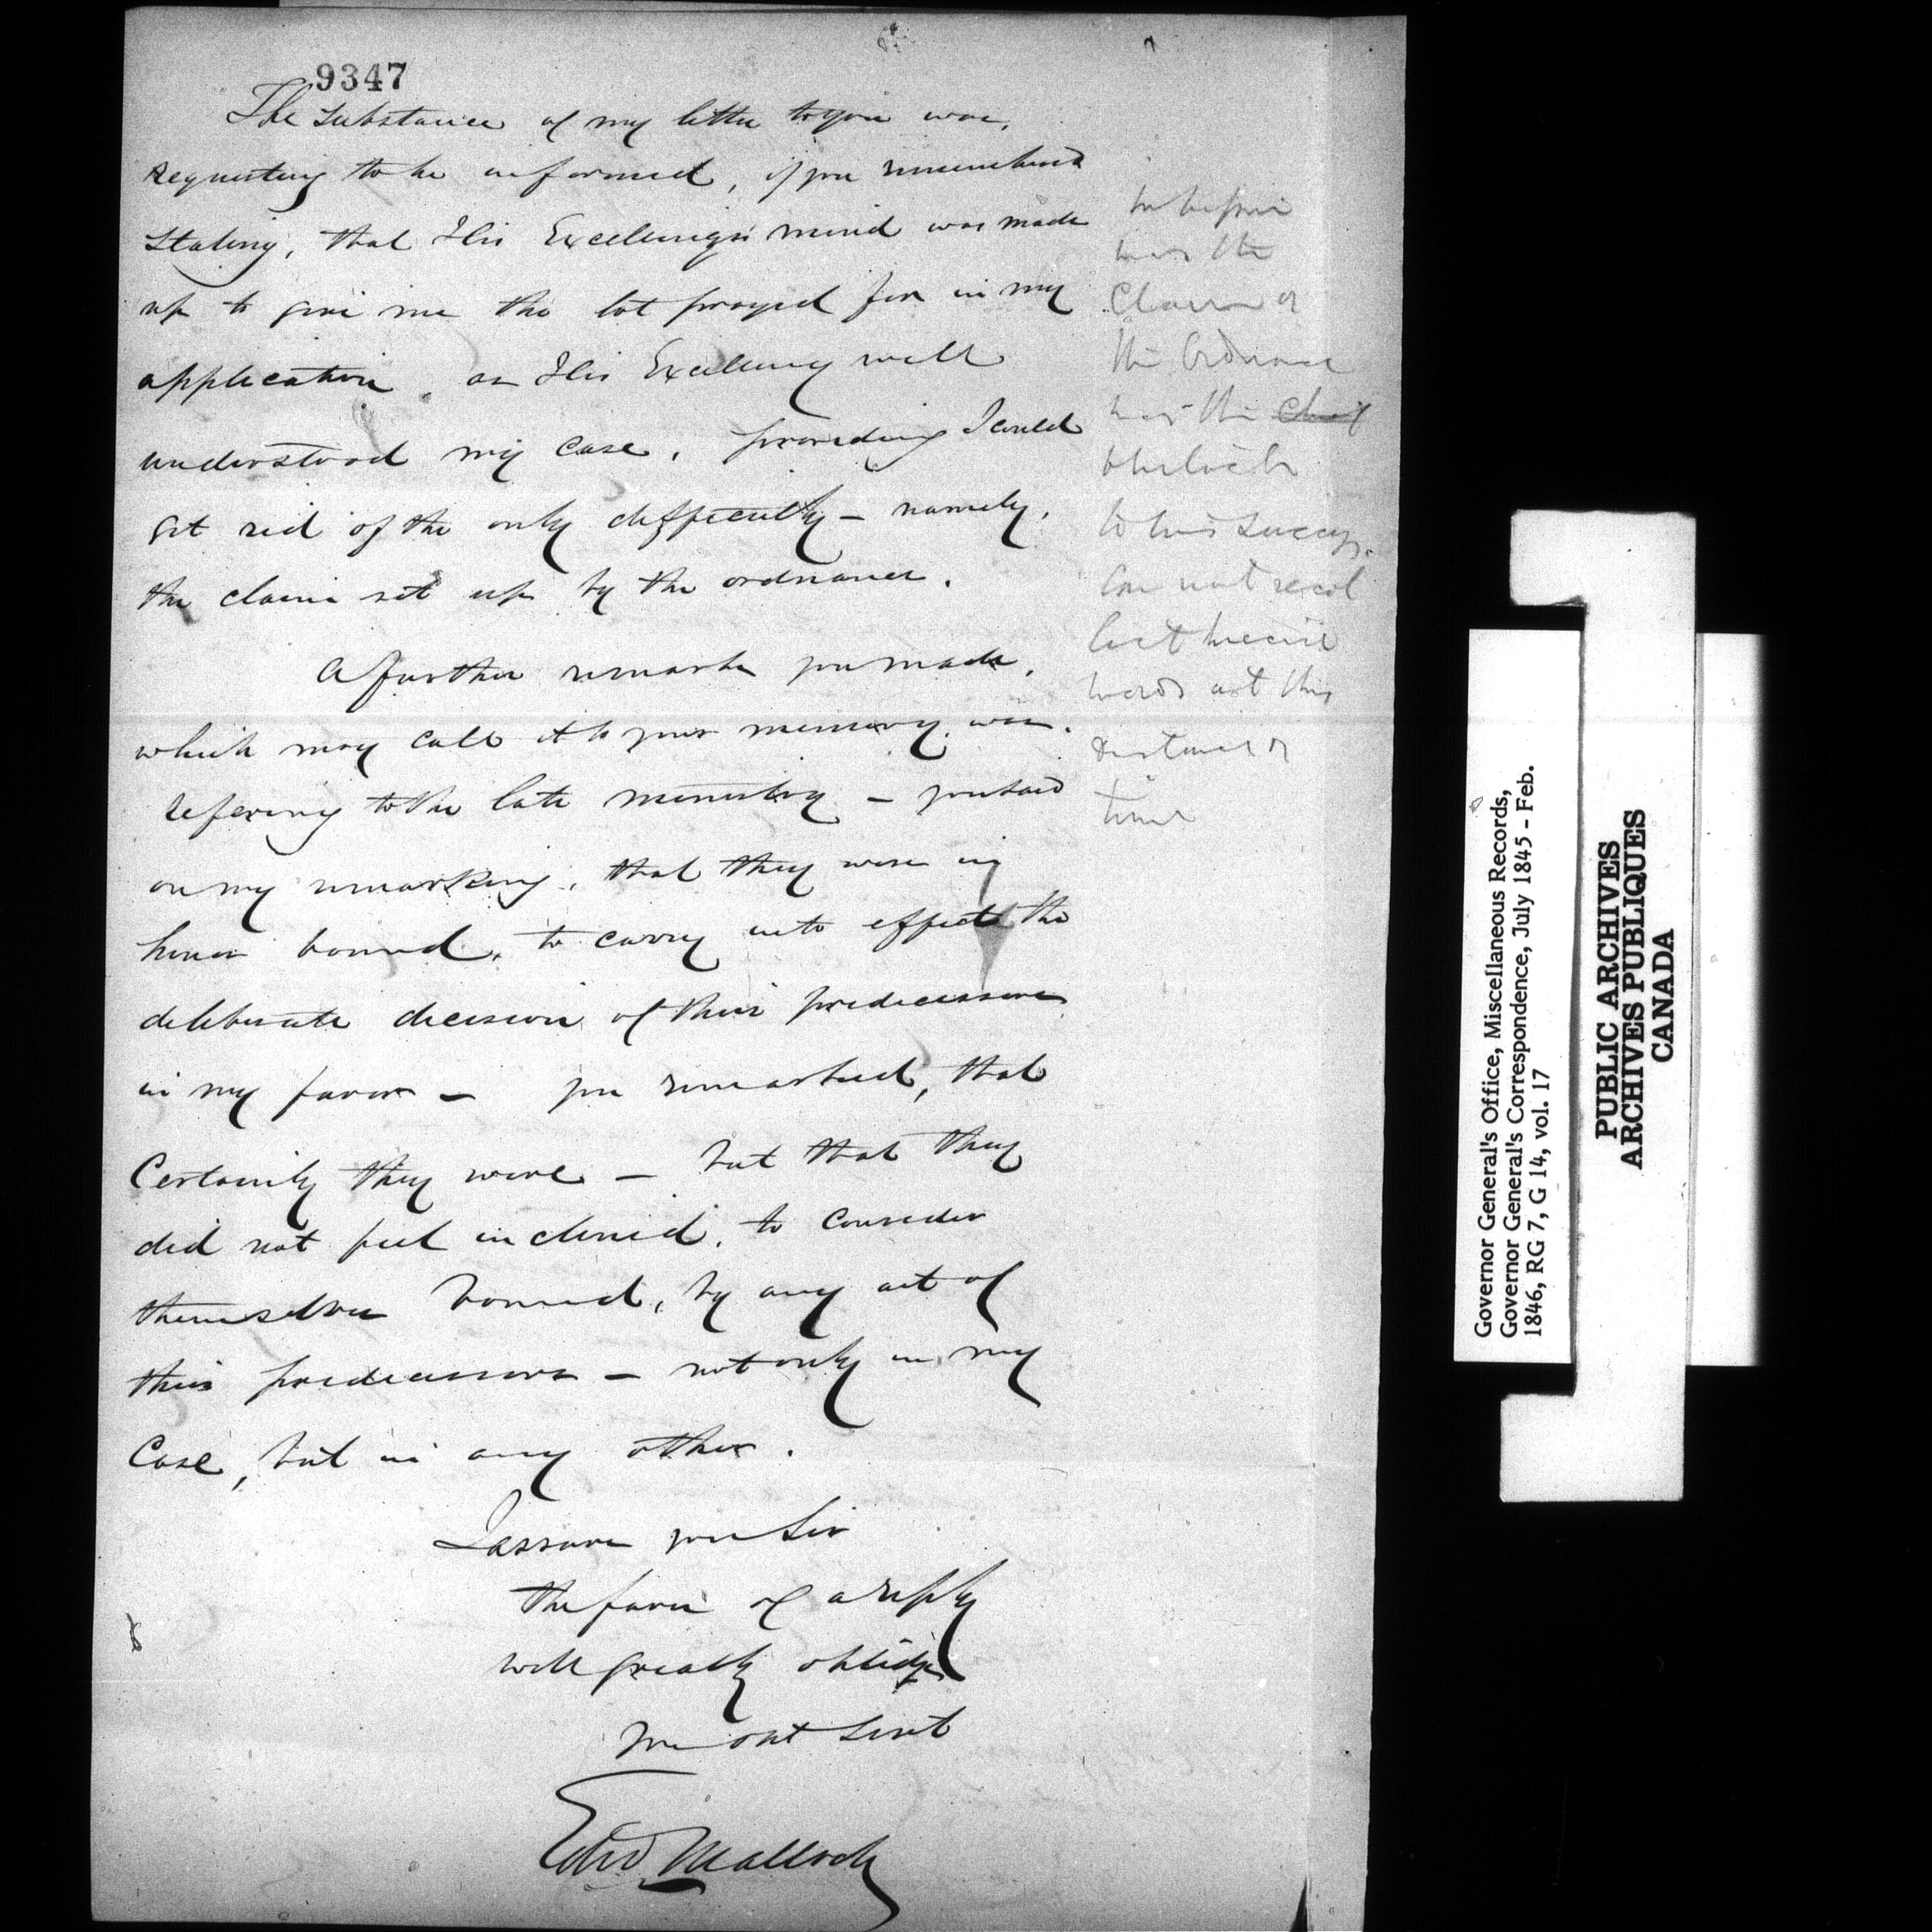 9347
The Substance of my letter to you was,
Requesting to be informed, if you remembered
Stating, that His Excellency's mind was made
up to give me the lot prayed for in my
application, as His Excellency well
understood my case, providing I could
get rid of the only difficulty – namely,
the claim set up by the ordnance.
A further remark you made,
which may call it to your memory was,
refering to the late ministry – you said
on my remarking, that they were in
honor bound, to carry into effect the
deliberate decision of their predecessors
in my favor – you remarked, that
Certainly they were – but that they
did not feel inclined, to consider
themselves bound, by any act of
their predecessors – not only in my
Case, but in any other.
I assure you Sir
the favor of a reply
will greatly oblidge
Edwd Malloch
was the
Claim of
the Ordnance
was the
obstacle
to his success.
Can not recol
lect precise
words at this
distance of
time
Governor General's Office, Miscellaneous Records,
Governor General's Correspondence, July 1845 - Feb.
1846, RG 7, G 14, vol. 17
PUBLIC ARCHIVES
ARCHIVES PUBLIQUES
CANADA